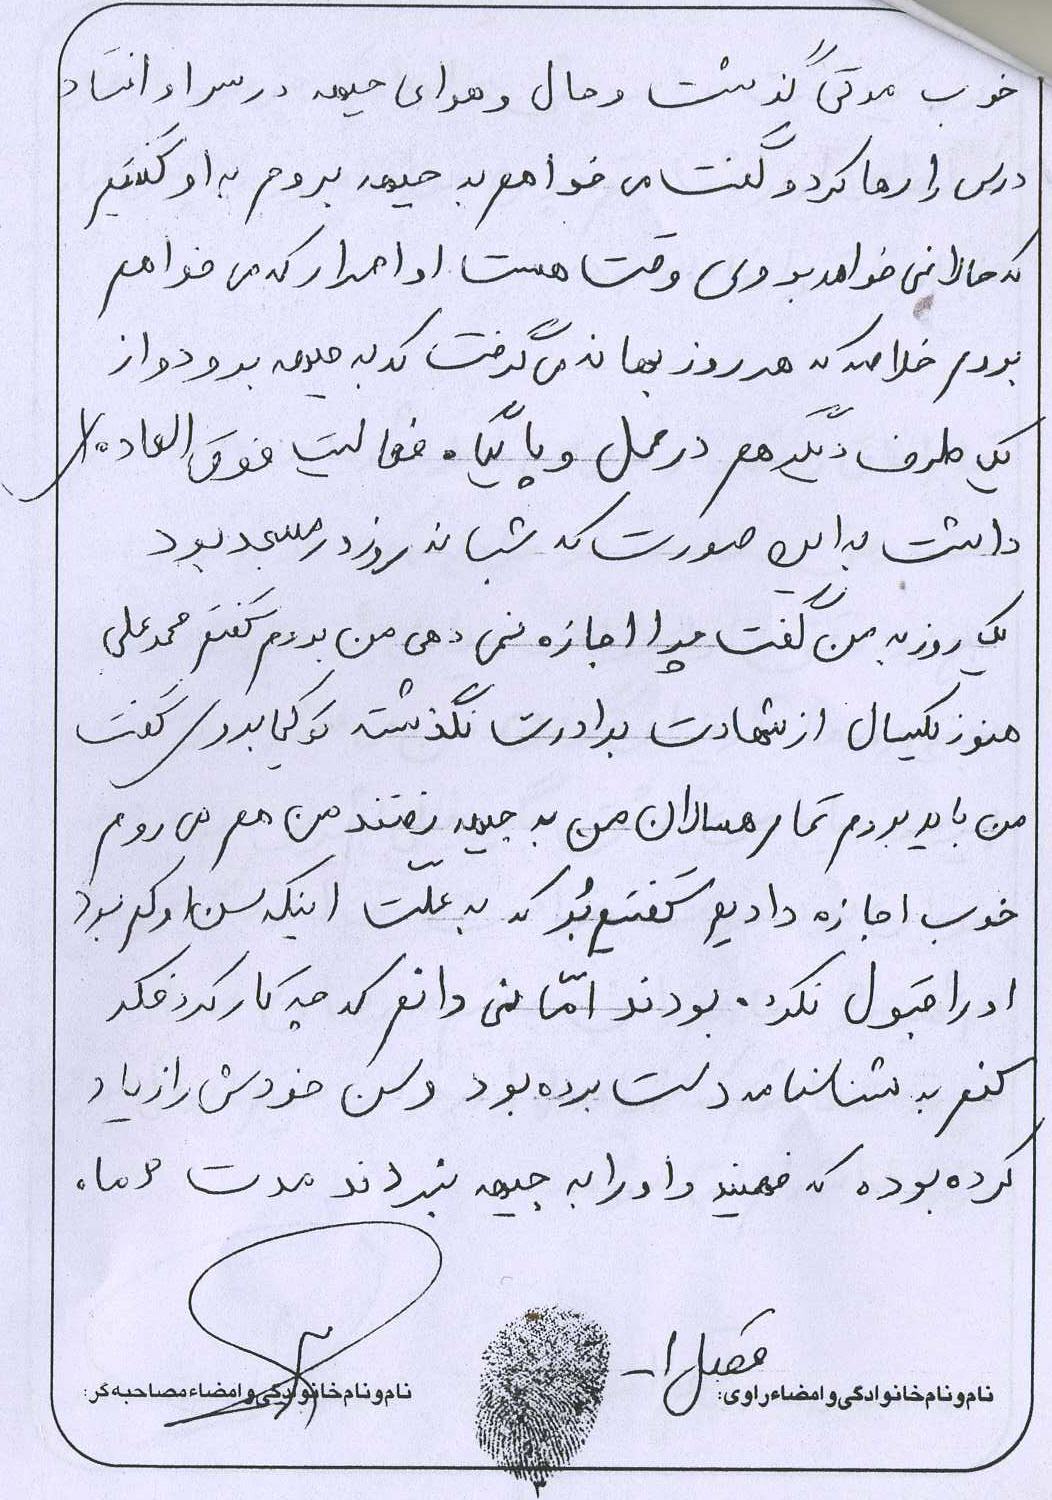 خوب مدتی گذشت و حال و هوای جبهه در سر او افتاد
درس را رها کرد و گفت می خواهم به جبهه بروم به او گفتیم
که حالا نمی خواهد بروی وقت هست او اصرار که می خواهم
بروم خلاصه که هر روز بهانه می گرفت که به جبهه برود و از
یک طرف دیگر هم در محل و پایگاه فعالیت فوق العاده ای
داشت به این صورت که شبانه روز در مسجد بود
یک روز به من گفت چرا اجازه نمی دهی من بروم گفتم محمدعلی
هنوز یکسال از شهادت برادرت نگذشته تو کجا بروی گفت
من باید بروم تمام همسالان من به جبهه رفتند من هم می روم
خوب اجازه دادیم گفتیم برو که به علّت اینکه سن او کم بود
او را قبول نکرده بودند امّا نمی دانم که چه کار کرد فکر
کنم به شناسنامه دست برده بود و سن خودش را زیاد
کرده بوده که فهمیدند و او را به جبهه نبردند مدت ماه
نام و نام خانوادگی و امضاء راوی:
نام و نام خانوادگی و امضاء مصاحبه گر:
۳